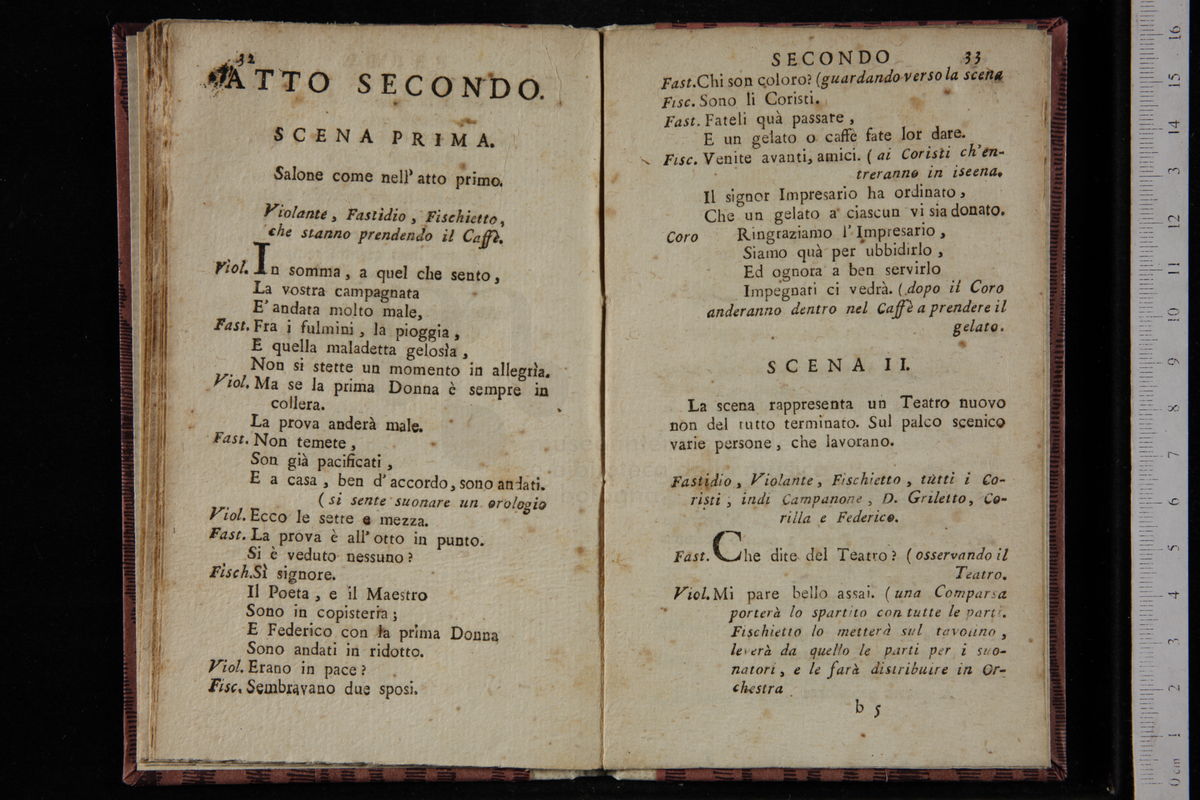 32
ATTO SECONDO.
SCENA PRIMA.
Salone come nell' atto primo.
Violante, Fastidio, Fischietto,
che stanno prendendo il Caffè.
Viol. In somma, a quel che sento,
La vostra campagnata
E' andata molto male,
Fast. Fra i fulmini, la pioggia,
E quella maladetta gelosìa,
Non si stette un momento in allegrìa.
Viol. Ma se la prima Donna è sempre in
collera.
La prova anderà male.
Fast. Non temete,
Son già pacificati,
E a casa, ben d'accordo, sono andati.
(si sente suonare un orologio
Viol. Ecco le sette e mezza.
Fast. La prova è all' otto in punto.
Si è veduto nessuno?
Fisch. Sì signore.
Il Poeta, e il Maestro
Sono in copisteria;
E Federico con la prima Donna
Sono andati in ridotto.
Viol. Erano in pace?
Fisc. Sembravano due sposi.
SECONDO 33
Fast. Chi son coloro? (guardando verso la scena
Fisc. Sono li Coristi.
Fast. Fateli quà passare,
E un gelato o caffè fate lor dare.
Fisc. Venite avanti, amici. (ai Coristi ch'en-
treranno in iseena.
Il signor Impresario ha ordinato,
Che un gelato a ciascun vi sia donato.
Coro Ringraziamo l' Impresario,
Siamo quà per ubbidirlo,
Ed ognora a ben servirlo
Impegnati ci vedrà. (dopo il Coro
anderanno dentro nel Caffè a prendere il
gelato.
SCENA II.
La scena rappresenta un Teatro nuovo
non del tutto terminato. Sul palco scenico
varie persone, che lavorano.
Fastidio, Violante, Fischietto, tutti i Co-
risti, indi Campanone, D. Griletto, Co-
rilla e Federico.
Fast. Che dite del Teatro? (osservando il
Teatro.
Viol. Mi pare bello assai. (una Comparsa
porterà lo spartito con tutte le parti.
Fischietto lo metterà sul tavolino,
leverà da quello le parti per i suo-
natori, e le farà distribuire in Or-
chestra
b 5
16
15
14
13
12
11
10
9
8
7
6
5
4
3
2
1
0 cm